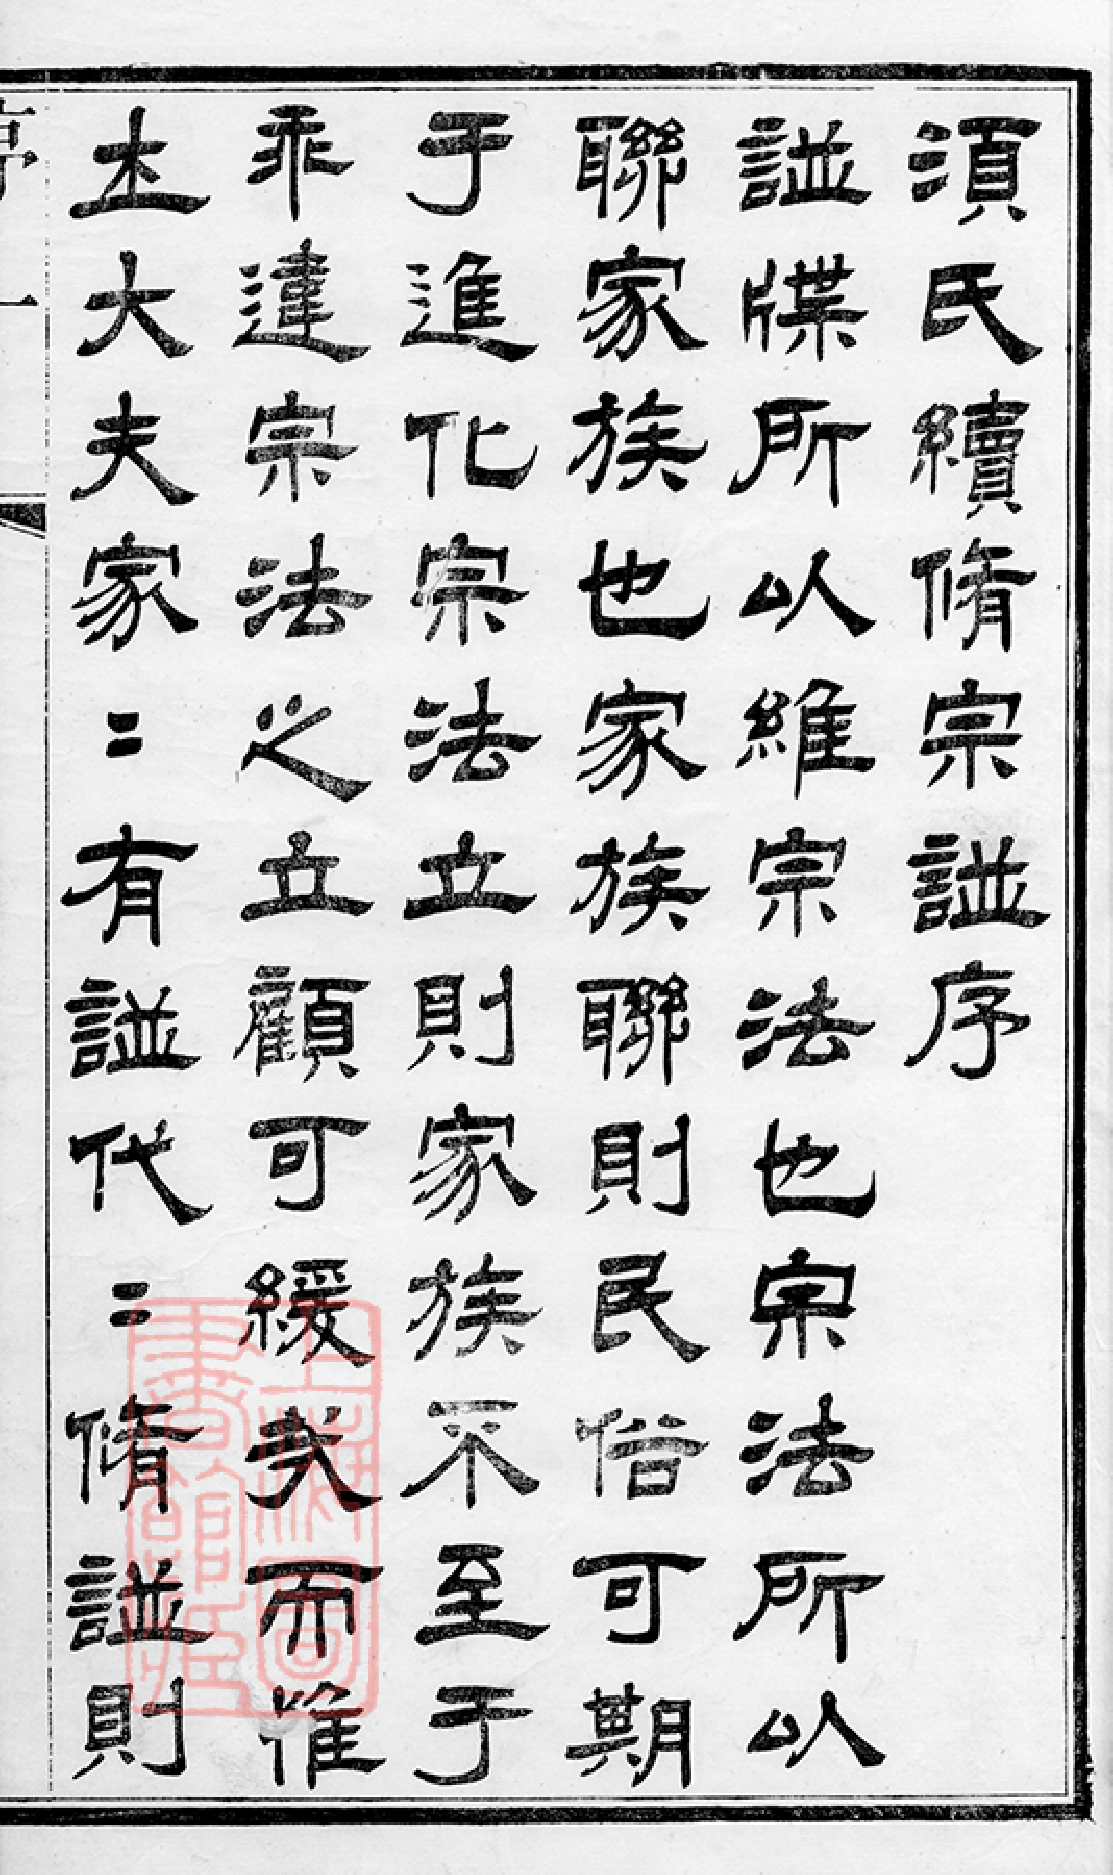 湏氏續脩宗諩序
諩牒所以維宗法也宗法所以
聯家族也家族聯則民俗可期
于進化宗法立則家族不至于
乖違宗法之立顧可緩哉而惟
士大夫家〻有諩代〻脩諩則
序 一
上海圖
書館藏